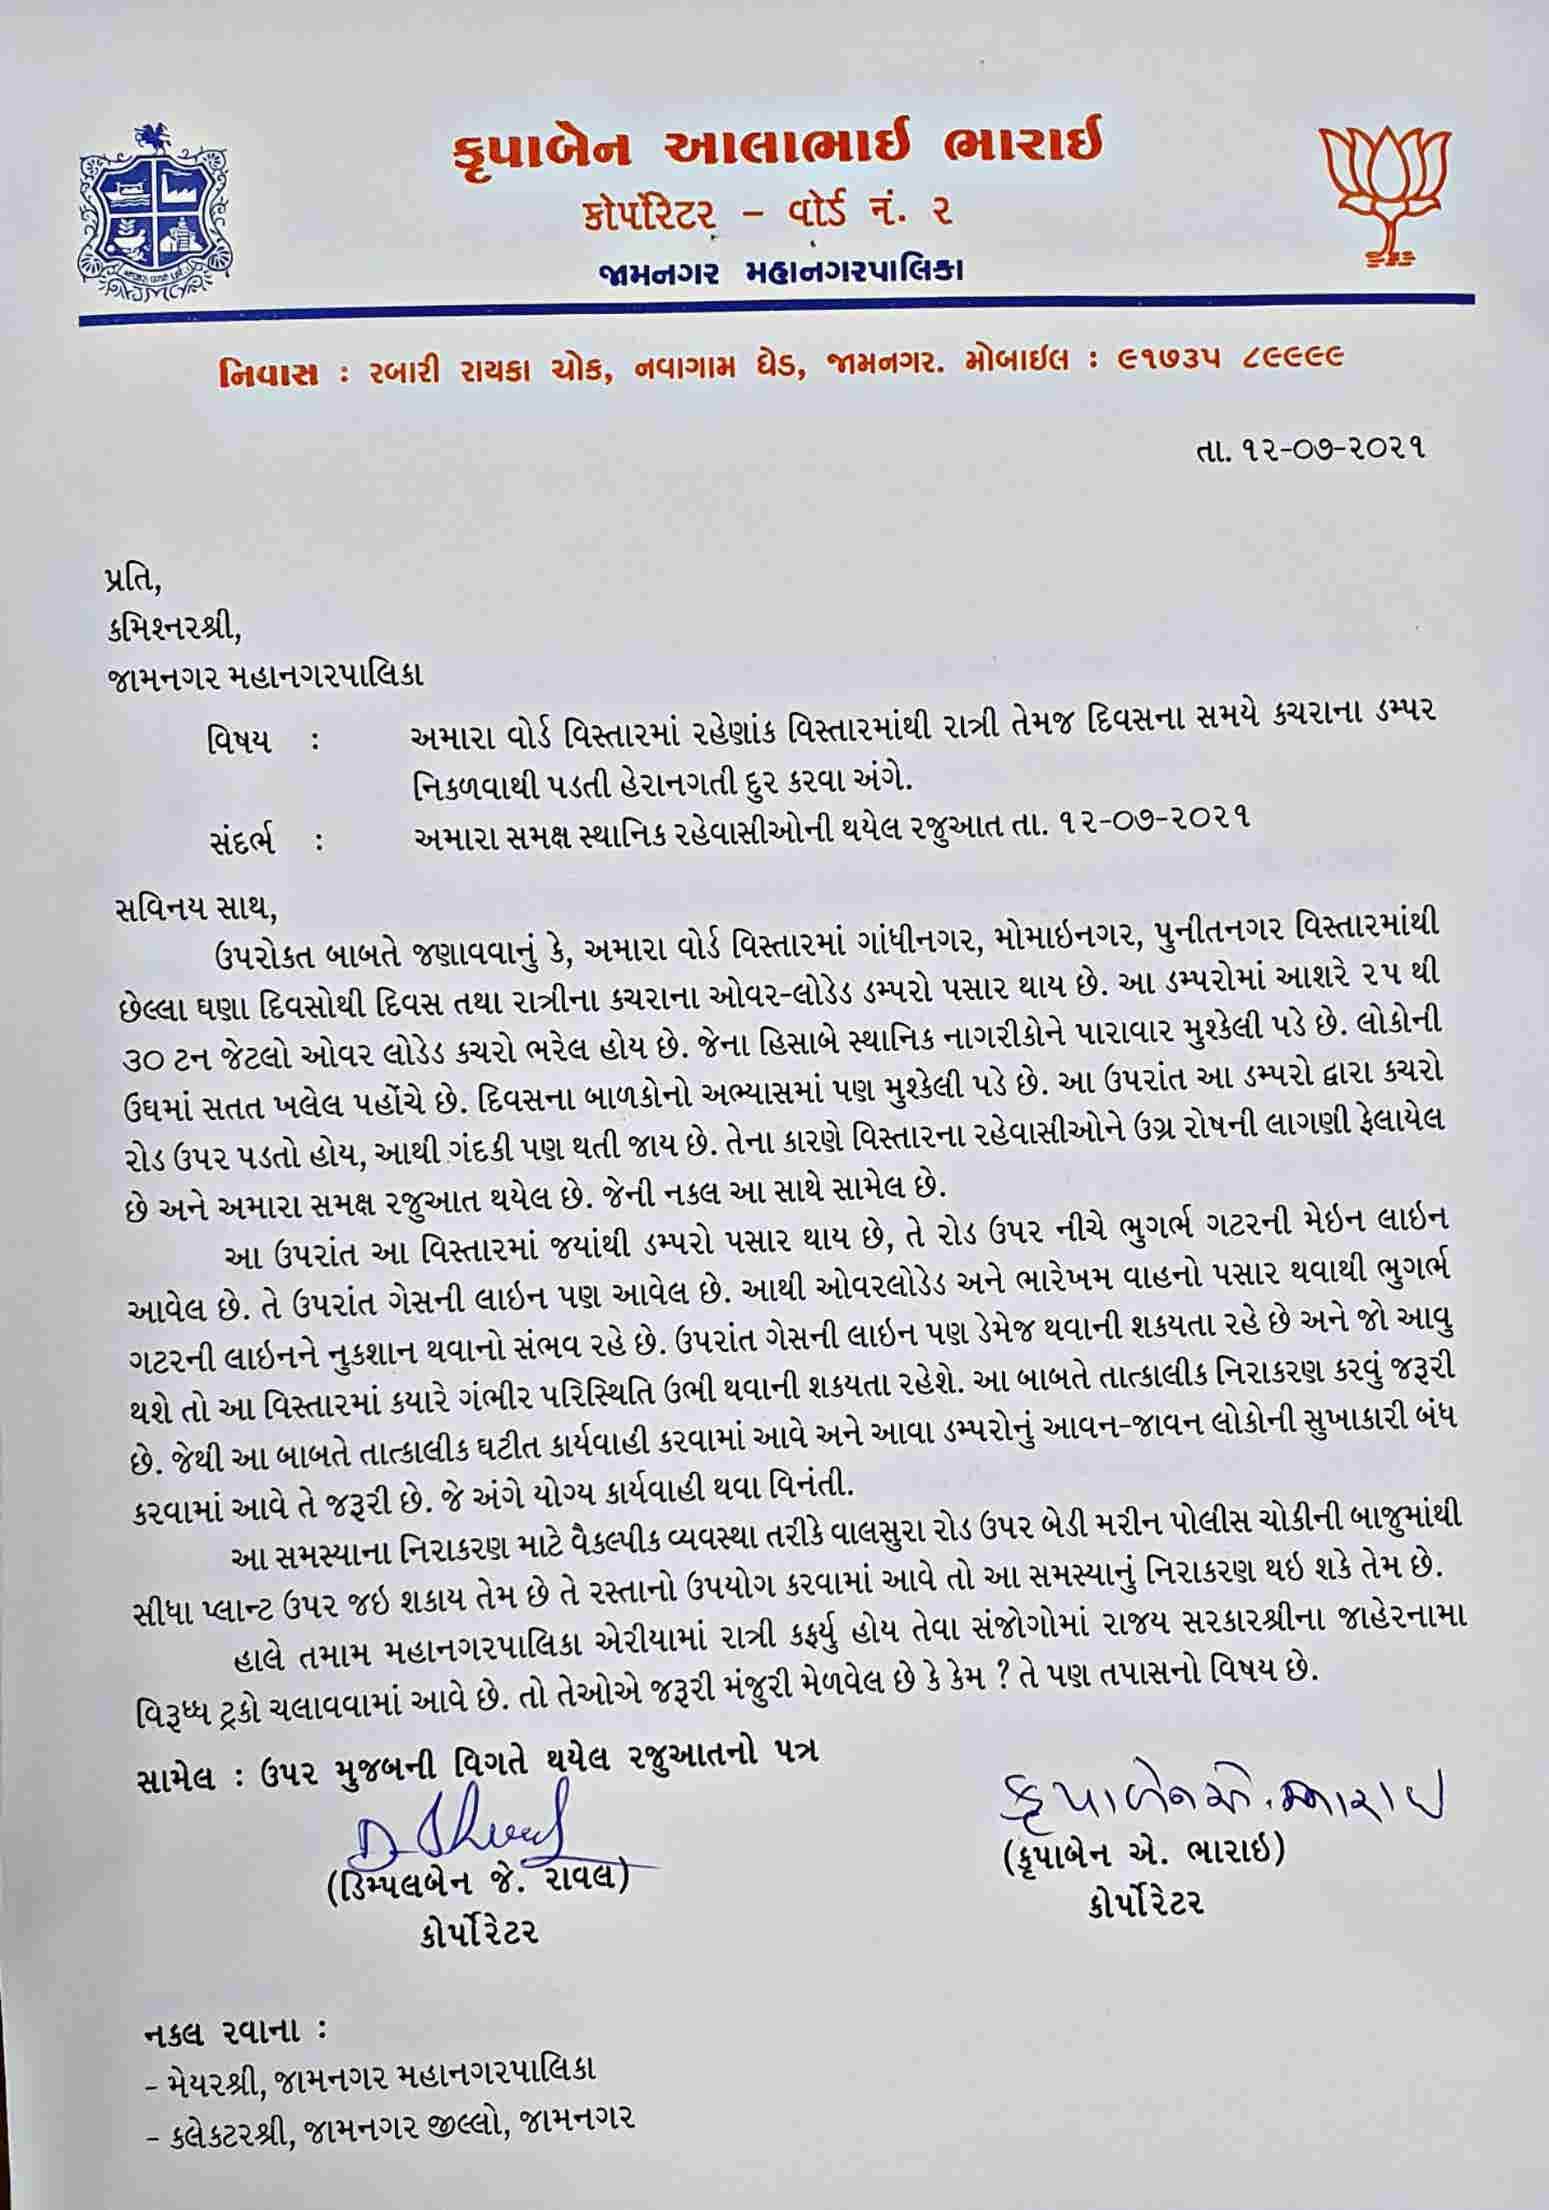 કૃપાબેન આલાભાઈ ભારાઈ
કોર્પોરેટર – વોર્ડ નં. ૨
જામનગર મહાનગરપાલિકા
નિવાસ : રબારી રાયકા ચોક, નવાગામ ઘેડ, જામનગર. મોબાઈલ : ૯૧૭૩૫ ૮૯૯૯૯
તા. ૧૨-૦૭-૨૦૨૧
પ્રતિ,
કમિશ્નરશ્રી,
જામનગર મહાનગરપાલિકા
વિષય : અમારા વોર્ડ વિસ્તારમાં રહેણાંક વિસ્તારમાંથી રાત્રી તેમજ દિવસના સમયે કચરાના ડમ્પર
નિકળવાથી પડતી હેરાનગતી દુર કરવા અંગે.
સંદર્ભ : અમારા સમક્ષ સ્થાનિક રહેવાસીઓની થયેલ રજુઆત તા. ૧૨-૦૭-૨૦૨૧
સવિનય સાથ,
ઉપરોકત બાબતે જણાવવાનું કે, અમારા વોર્ડ વિસ્તારમાં ગાંધીનગર, મોમાઇનગર, પુનીતનગર વિસ્તારમાંથી
છેલ્લા ઘણા દિવસોથી દિવસ તથા રાત્રીના કચરાના ઓવર-લોડેડ ડમ્પરો પસાર થાય છે. આ ડમ્પરોમાં આશરે ૨૫ થી
૩૦ ટન જેટલો ઓવર લોડેડ કચરો ભરેલ હોય છે. જેના હિસાબે સ્થાનિક નાગરીકોને પારાવાર મુશ્કેલી પડે છે. લોકોની
ઉઘમાં સતત ખલેલ પહોંચે છે. દિવસના બાળકોનો અભ્યાસમાં પણ મુશ્કેલી પડે છે. આ ઉપરાંત આ ડમ્પરો દ્વારા કચરો
રોડ ઉપર પડતો હોય, આથી ગંદકી પણ થતી જાય છે. તેના કારણે વિસ્તારના રહેવાસીઓને ઉગ્ર રોષની લાગણી ફેલાયેલ
છે અને અમારા સમક્ષ રજુઆત થયેલ છે. જેની નકલ આ સાથે સામેલ છે.
આ ઉપરાંત આ વિસ્તારમાં જયાંથી ડમ્પરો પસાર થાય છે, તે રોડ ઉપર નીચે ભુગર્ભ ગટરની મેઇન લાઇન
આવેલ છે. તે ઉપરાંત ગેસની લાઇન પણ આવેલ છે. આથી ઓવરલોડેડ અને ભારેખમ વાહનો પસાર થવાથી ભુગર્ભ
ગટરની લાઇનને નુકશાન થવાનો સંભવ રહે છે. ઉપરાંત ગેસની લાઇન પણ ડેમેજ થવાની શકયતા રહે છે અને જો આવુ
થશે તો આ વિસ્તારમાં કયારે ગંભીર પરિસ્થિતિ ઉભી થવાની શકયતા રહેશે. આ બાબતે તાત્કાલીક નિરાકરણ કરવું જરૂરી
છે. જેથી આ બાબતે તાત્કાલીક ઘટીત કાર્યવાહી કરવામાં આવે અને આવા ડમ્પરોનું આવન-જાવન લોકોની સુખાકારી બંધ
કરવામાં આવે તે જરૂરી છે. જે અંગે યોગ્ય કાર્યવાહી થવા વિનંતી.
આ સમસ્યાના નિરાકરણ માટે વૈકલ્પીક વ્યવસ્થા તરીકે વાલસુરા રોડ ઉપર બેડી મરીન પોલીસ ચોકીની બાજુમાંથી
સીધા પ્લાન્ટ ઉપર જઇ શકાય તેમ છે તે રસ્તાનો ઉપયોગ કરવામાં આવે તો આ સમસ્યાનું નિરાકરણ થઇ શકે તેમ છે.
હાલે તમામ મહાનગરપાલિકા એરીયામાં રાત્રી કર્ફયુ હોય તેવા સંજોગોમાં રાજય સરકારશ્રીના જાહેરનામા
વિરૂધ્ધ ટ્રકો ચલાવવામાં આવે છે. તો તેઓએ જરૂરી મંજુરી મેળવેલ છે કે કેમ ? તે પણ તપાસનો વિષય છે.
સામેલ : ઉપર મુજબની વિગતે થયેલ રજુઆતનો પત્ર
કૃપાબેન એ. ભારાઇ
(ડિમ્પલબેન જે. રાવલ) (કૃપાબેન એ. ભારાઇ)
કોર્પોરેટર કોર્પોરેટર
નકલ રવાના :
- મેયરશ્રી, જામનગર મહાનગરપાલિકા
- કલેકટરશ્રી, જામનગર જીલ્લો, જામનગર